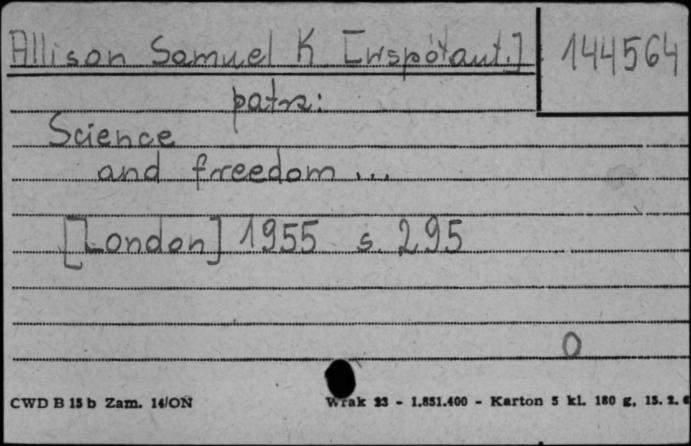 Allison Samuel K [współaut.] 144564
patrz:
Science
and freedom ...
[London] 1955 s. 295
O
CWD B 15 b Zam. 14/ON Wrak 23 - 1.851.400 - Karton 5 kl. 180 g, 15. 2. 6